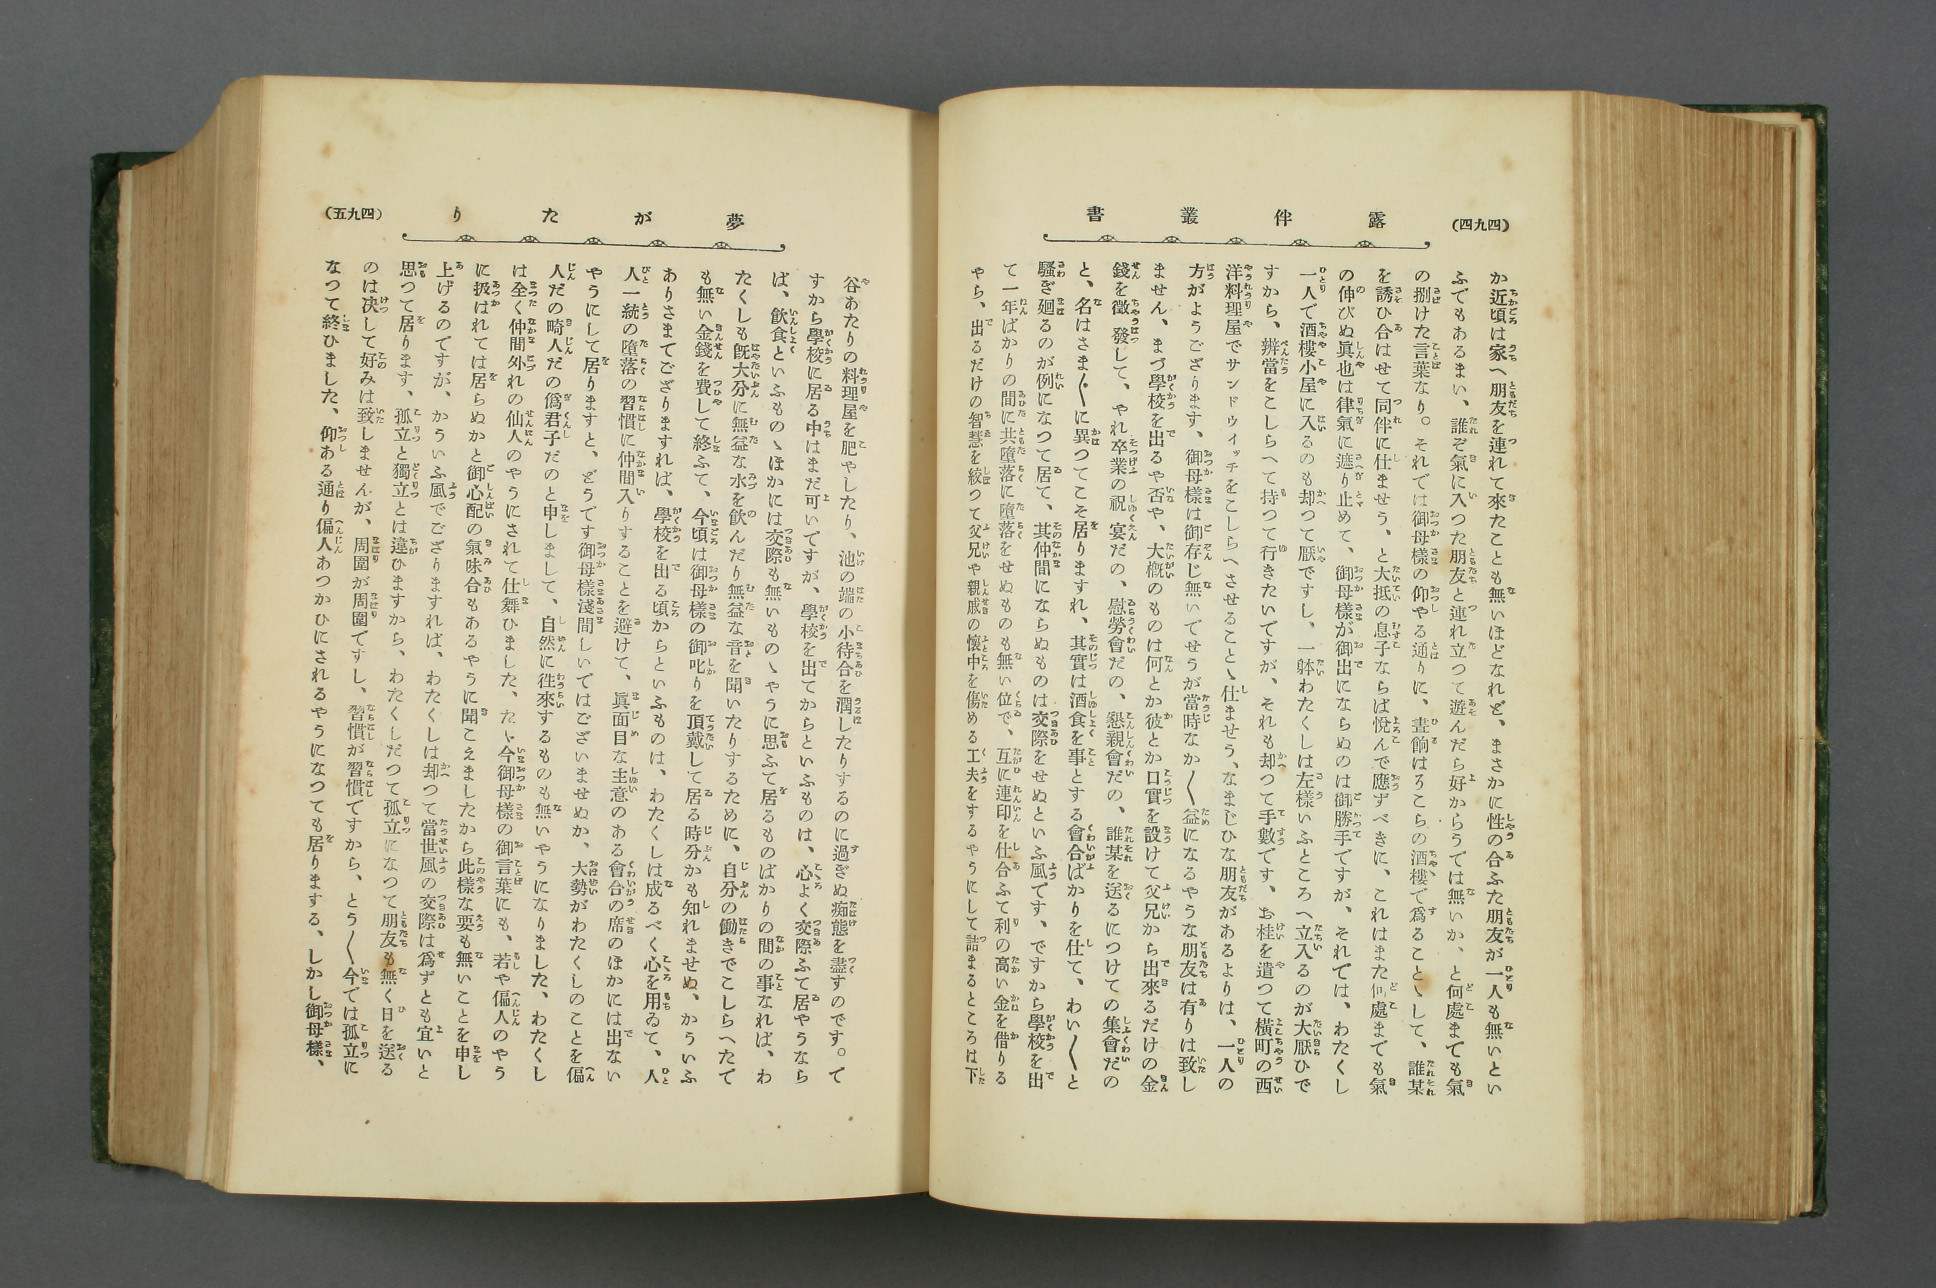 (四九四)
露伴叢書
か近頃は家へ朋友を連れて來たことも無いほどなれど、まさかに性の合ふた朋友が一人も無いとい
ふでもあるまい、誰ぞ氣に入つた朋友と連れ立つて遊んだら好からうでは無いか、と何處までも氣
の捌けた言葉なり。それでは御母樣の仰やる通りに、晝餉はろこらの酒樓で爲ること〻して、誰某
を誘ひ合はせて同伴に仕ませう、と大抵の息子ならば悅んで應ずべきに、これはまた何處までも氣
の伸びぬ眞也は律氣に遮り止めて、御母樣が御出にならぬのは御勝手ですが、それでは、わたくし
一人で酒樓小屋に入るのも却つて厭ですし、一躰わたくしは左樣いふところへ立入るのが大厭ひで
すから、辨當をこしらへて持つて行きたいですが、それも却つて手數です、お桂を遣つて橫町の西
洋料理屋でサンドウィッチをこしらへさせること〻仕ませう、なまじひな朋友があるよりは、一人の
方がようござります、御母樣は御存じ無いでせうが當時なか〱益になるやうな朋友は有りは致し
ません、まづ學校を出るや否や、大概のものは何とか彼とか口實を設けて父兄から出來るだけの金
錢を徵發して、やれ卒業の祝宴だの、慰勞會だの、懇親會だの、誰某を送るにつけての集會だの
と、名はさま〲に異つてこそ居りますれ、其實は酒食を事とする會合ばかりを仕て、わい〱と
騷ぎ廻るのが例になつて居て、其仲間にならぬものは交際をせぬといふ風です、ですから學校を出
て一年ばかりの間に共墮落に墮落をせぬものも無い位で、互に連印を仕合ふて利の高い金を借りる
やら、出るだけの智慧を絞つて父兄や親戚の懷中を傷める工夫をするやうにして詰まるところは下
夢がたり
(四九五)
谷あたりの料理屋を肥やしたり、池の端の小待合を潤したりするのに過ぎぬ痴態を盡すのです。で
すから學校に居る中はまだ可いですが、學校を出てからといふものは、心よく交際ふて居やうなら
ば、飮食といふもの〻ほかには交際も無いもの〻やうに思ふて居るものばかりの間の事なれば、わ
たくしも旣大分に無益な水を飮んだり無益な音を聞いたりするために、自分の働きでこしらへたで
も無い金錢を費して終ふて、今頃は御母樣の御叱りを頂戴して居る時分かも知れませぬ、かういふ
ありさまでござりますれば、學校を出る頃からといふものは、わたくしは成るべく心を用ゐて、人
人一統の墮落の習慣に仲間入りすることを避けて、眞面目な主意のある會合の席のほかには出ない
やうにして居りますと、どうです御母樣淺間しいではございませぬか、大勢がわたくしのことを偏
人だの畸人だの僞君子だのと申しまして、自然に徃來するものも無いやうになりました、わたくし
は全く仲間外れの仙人のやうにされて仕舞ひました、たゞ今御母樣の御言葉にも、若や偏人のやう
に扱はれては居らぬかと御心配の氣味合もあるやうに聞こえましたから此樣な要も無いことを申し
上げるのですが、かういふ風でござりますれば、わたくしは却つて當世風の交際は爲ずとも宜いと
思つて居ります、孤立と獨立とは違ひますから、わたくしだつて孤立になつて朋友も無く日を送る
のは决して好みは致しませんが、周圍が周圍ですし、習慣が習慣ですから、とう〱今では孤立に
なつて終ひました、仰ある通り偏人あつかひにされるやうになつても居りまする、しかし御母樣、